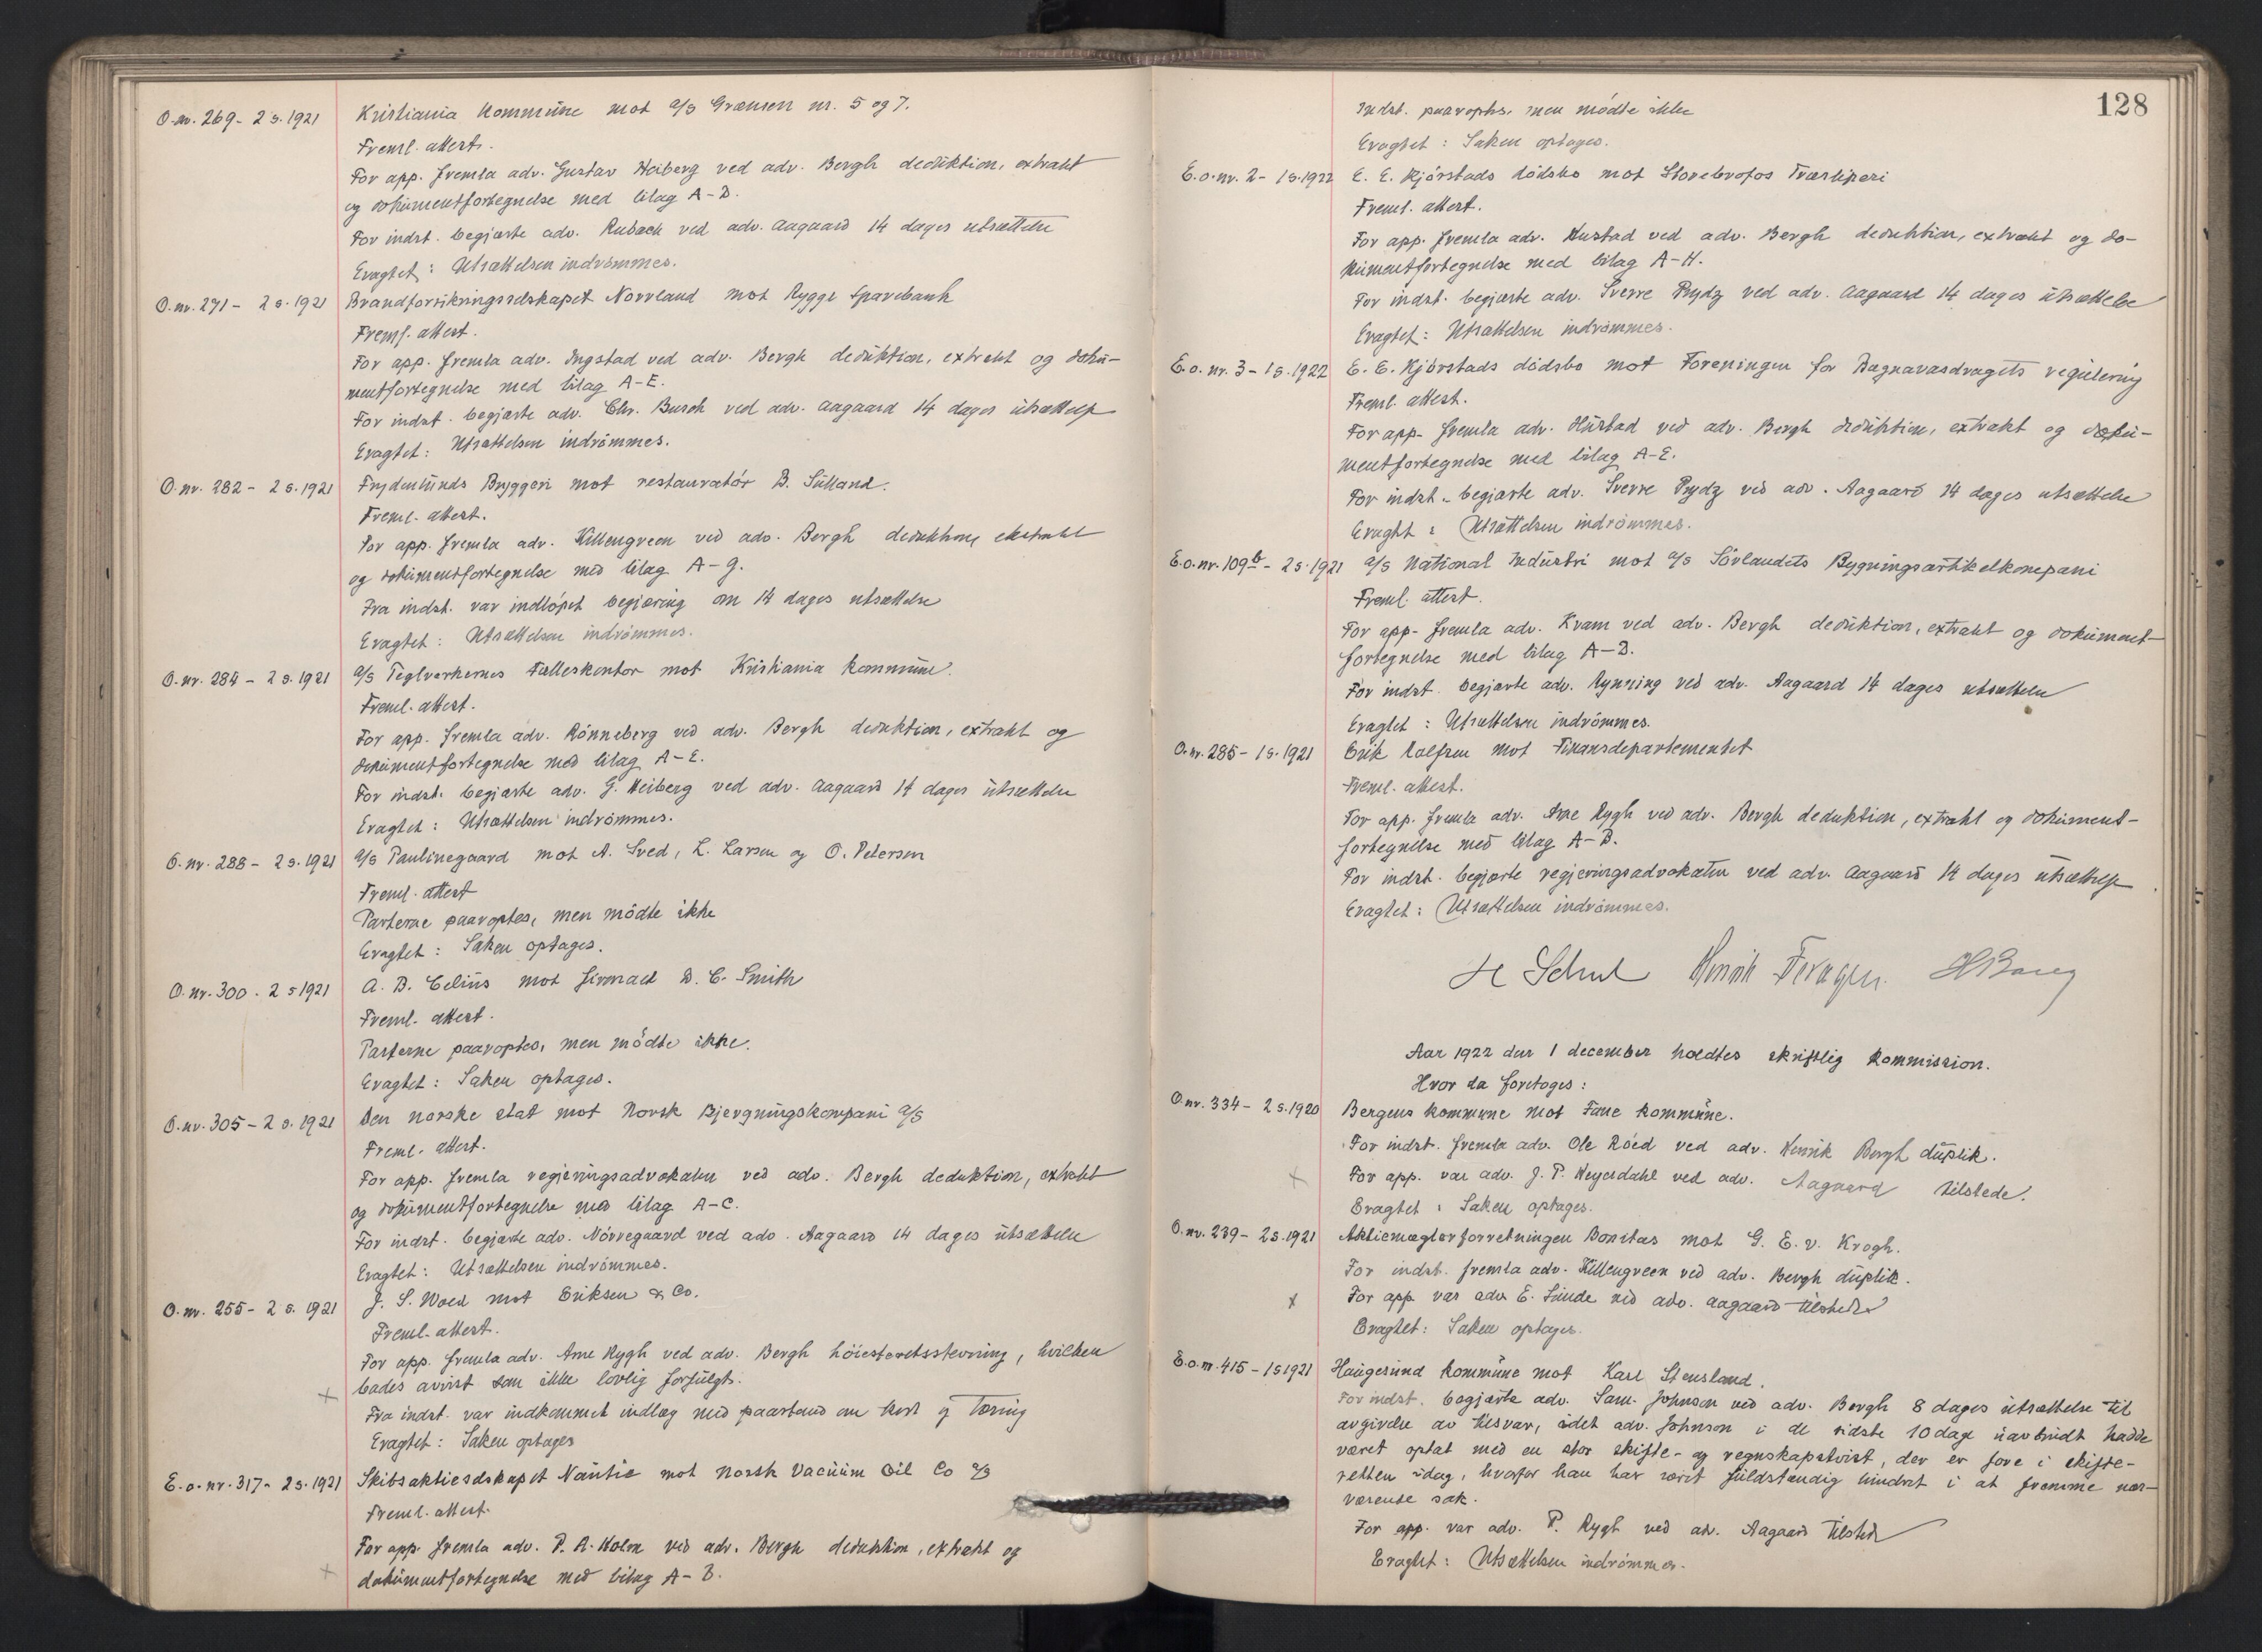 O.nr. 269 - 2 s. 1921 Kristiania Kommune mot a/s Grænsen nr. 5 og 7.
Freml. attest.
For app. fremla adv. Gustav Heiberg ved adv. Bergh deduktion, extrakt
og dokumentfortegnelse med bilag A-D.
For indst. begjærte adv. Rubach ved adv. Aagaard 14 dages utsættelse
Eragtet: Utsættelsen indrömmes.
O.nr. 271 - 2 s. 1921 Brandforsikringsselskapet Norrland mot Rygge Sparebank
Freml. attest.
For app. fremla adv. Ingstad ved adv. Bergh deduktion, extrakt og doku-
mentfortegnelse med bilag A-E.
For indst. begjærte adv. Chr. Busch ved adv. Aagaard 14 dages utsættelse
Eragtet: Utsættelsen indrömmes.
O.nr. 282 - 2 s. 1921 Frydenlunds Bryggeri mot restauratör B. Sulland.
Freml. attest.
For app. fremla adv. Killengreen ved adv. Bergh deduktion, ekstrakt
og dokumentfortegnelse med bilag A-G.
Fra indst. var indlöpet begjæring om 14 dages utsættelse
Eragtet: Utsættelsen indrömmes.
O.nr. 284 - 2 s. 1921 a/s Teglverkernes Fælleskontor mot Kristiania kommune.
Freml. attest.
For app. fremla adv. Rönneberg ved adv. Bergh deduktion, extrakt og
dokumentfortegnelse med bilag A-E.
For indst. begjærte adv. G. Heiberg ved adv. Aagaard 14 dages utsættelse
Eragtet: Utsættelsen indrömmes.
O.nr. 288 - 2 s. 1921 a/s Paulinegaard mot A. Sved, L. Larsen og O. Petersen
Freml. attest
Parterne paaroptes, men mödte ikke
Eragtet: Saken optages.
O.nr. 300. 2 s 1921 A. B. Celius mot firmaet D. C. Smith
Freml. attest.
Parterne paaroptes, men mödte ikke.
Eragtet: Saken optages.
O.nr. 305 - 2 s. 1921 Den norske stat mot Norsk Bjergningskompani a/s
Freml. attest.
For app. fremla regjeringsadvokaten ved adv. Bergh deduktion, extrakt
og dokumentfortegnelse med bilag A-C.
For indst. begjærte adv. Nörregaard ved adv. Aagaard 14 dages utsættelse
Eragtet: Utsættelsen indrömmes.
O.nr. 255 - 2 s. 1921 J. S. Woed mot Eriksen & Co.
Freml. attest.
For app. fremla adv. Arne Rygh ved adv. Bergh höiesteretsstevning, hvilken
bades avvist som ikke lovlig forfulgt.
x Fra indst. var indkommet indlæg med paastand om kost og tæring
Eragtet: Saken optages
E.o.nr. 317 - 2 s. 1921 Skibsaktieselskapet Nautic mot Norsk Vacuum Oil Co a/s
Freml. attest.
For app. fremla adv. P. A. Holm ved adv. Bergh deduktion, extrakt og
x dokumentfortegnelse med bilag A-B.
128
Indst. paaroptes, men mödte ikke
Eragtet: Saken optages.
E.o.nr. 2 - 1 s. 1922 E. E. Kjörstads dödsbo mot Storebrofos Træsliperi
Freml. attest.
For app. fremla adv. Hustad ved adv. Bergh deduktion, extrakt og do-
kumentfortegnelse med bilag A-H.
For indst. begjærte adv. Sverre Rydz ved adv. Aagaard 14 dages utsættelse
Eragtet: Utsættelsen indrömmes.
E.o.nr. 3 - 1 s. 1922 E. E. Kjörstads dödsbo mot Foreningen for Bægnavasdragets regulering
Freml. attest.
For app. fremla adv. Hustad ved adv. Bergh deduktion, extrakt og doku-
mentfortegnelse med bilag A-E.
For indst. begjærte adv. Sverre Rydz ved adv. Aagaard 14 dages utsættelse
Eragtet: Utsættelsen indrömmes.
E.o.nr. 109b - 2 s. 1921 a/s National Industri mot a/s Sörlandets Bygningsartikelkompani
Freml. attest.
For app. fremla adv. Kram ved adv. Bergh deduktion, extrakt og dokument-
fortegnelse med bilag A-B.
For indst. begjærte adv. Rynning ved adv. Aagaard 14 dages utsættelse
Eragtet: Utsættelsen indrömmes.
O.nr. 285 - 1 s. 1921 Erik Rolfsen mot Finansdepartementet
Freml. attest.
For app. fremla adv. Arne Rygh ved adv. Bergh deduktion, extrakt og dokument-
fortegnelse med bilag A-B.
For indst. begjærte regjeringsadvokaten ved adv. Aagaard 14 dages utsættelse
Eragtet: Utsættelsen indrömmes.
Henrik
Aar 1922 den 1 december holdtes skriftlig kommission.
Hvor da foretoges:
O.nr. 334 - 2 s. 1920 Bergens kommune mot Fane kommune.
For indst. fremla adv. Ole Röed ved adv. Henrik Bergh duplik.
x For app. var adv. J. P. Heyerdahl ved adv. Aagaard tilstede.
Eragtet: Saken optages.
O.nr. 239 - 2 s. 1921 Aktiemæglerforretningen Bonitas mot G. E. v. Krogh.
For indst. fremla adv. Killengreen ved adv. Bergh duplik.
x For app. var adv. E. Lunde ved adv. Aagaard tilstede
Eragtet: Saken optages.
E.o.nr. 415 - 1 s 1921 Haugesund kommune mot Karl Stensland.
For indst. begjærte adv. Sam. Johnson ved adv. Bergh 8 dages utsættelse til
avgivelse av tilsvar, idet adv. Johnson i de sidste 10 dage uavbrudt hadde
været optat med en stor skifte- og regnskapstvist, der er fore i skifte-
retten idag, hvorfor han har været fuldstændig hindret i at fremme nær-
værende sak.
For app. var adv. P. Rygh ved adv. Aagaard tilstede
Eragtet: Utsættelsen indrömmes.